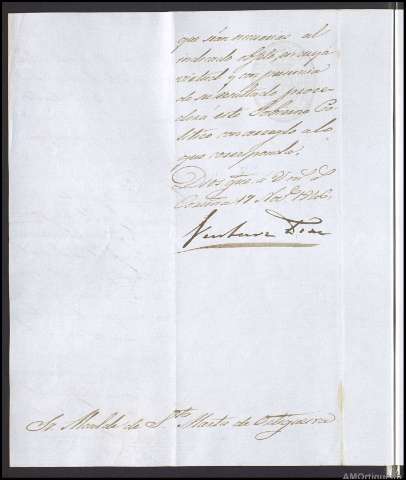 que sean anuevos al
indicado objeto, en cuya
virtud y con presencia
de su resultado proce-
derá este Gobierno Po-
lítico con arreglo a lo
que corresponda.
Dios gue. a V. m. a.
Coruña 17 Nove. 1846.
Ventura Diaz
Sr. Alcalde de Sta. Marta de Ortigueira
AMOrtigueira